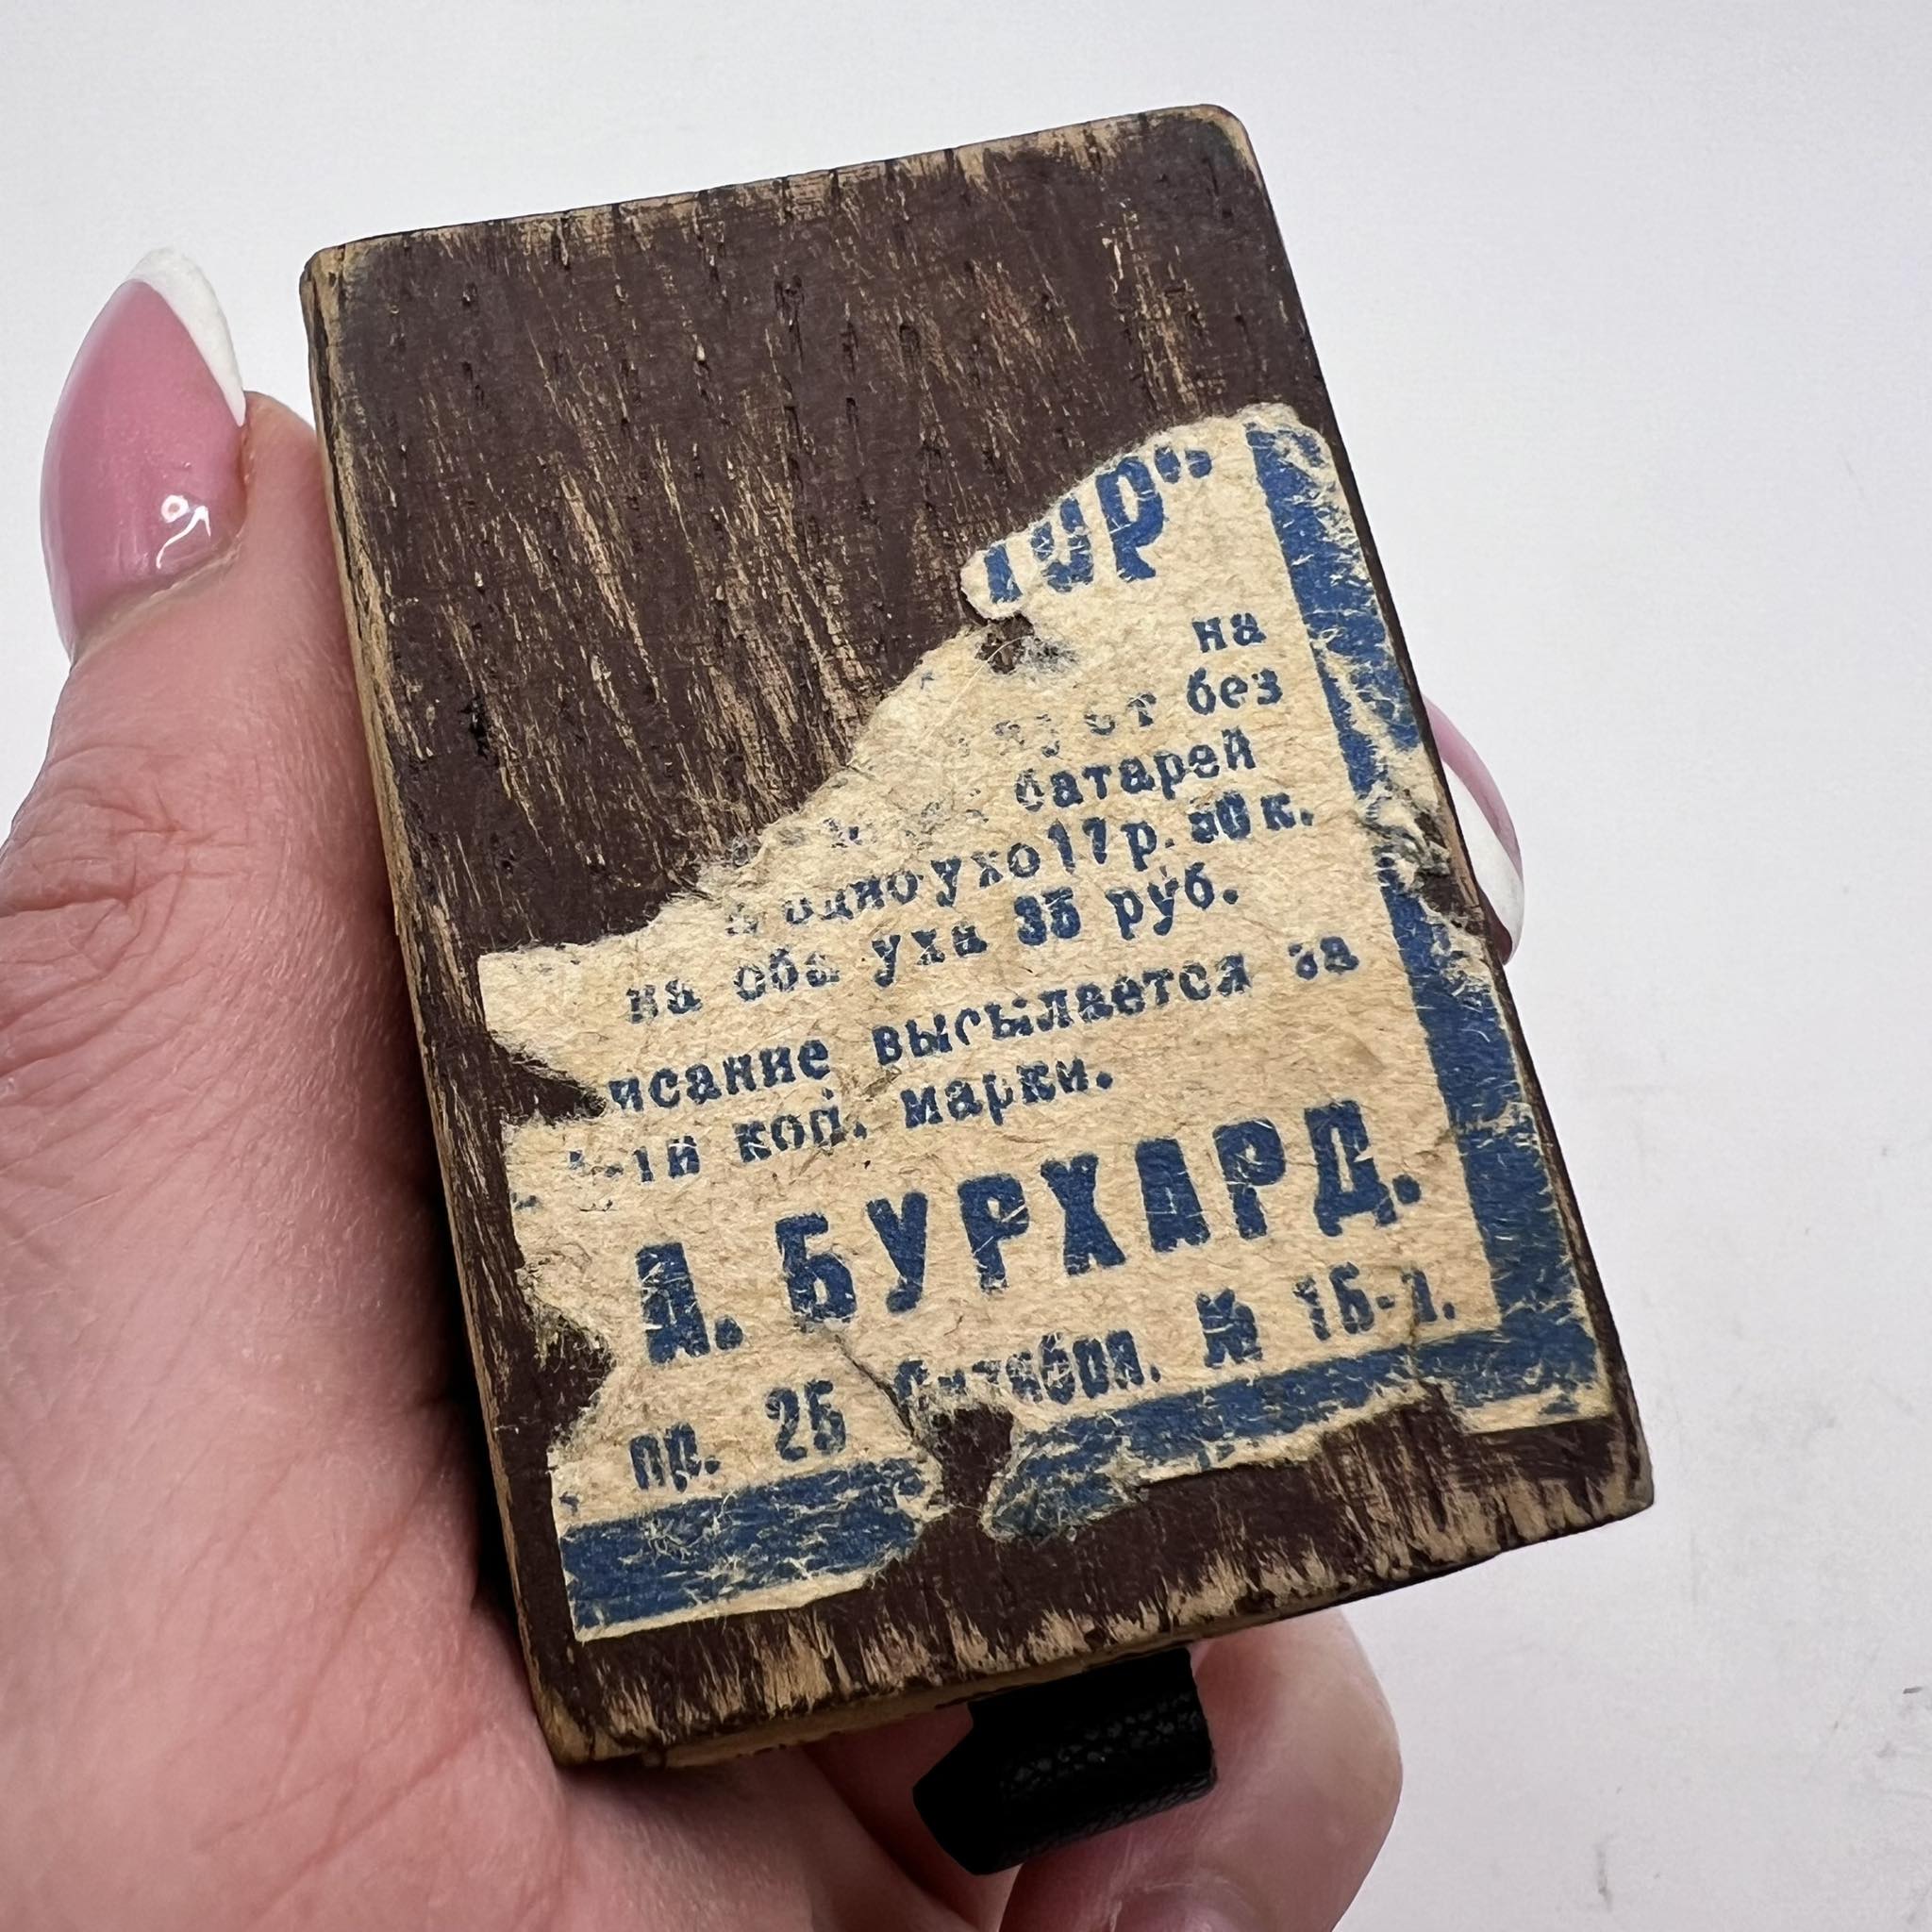 тор"
на
ует без
батарей
одно ухо 17 р. 50 к.
на оба уха 35 руб.
исание высылается за
коп. марки.
А. БУРХАРД.
пр. 25 Октября. № 15-